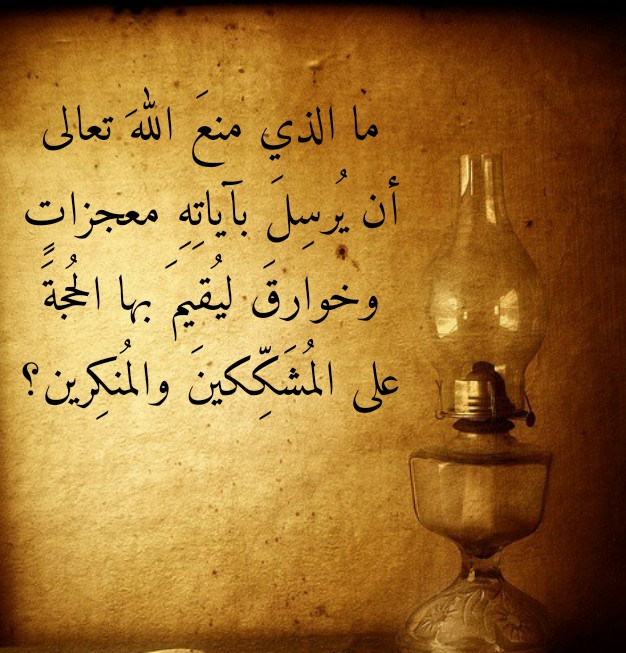 ما الذي منعَ اللهَ تعالى
أن يُرسِلَ بآياتِهِ معجزاتٍ
وخوارقَ ليُقيمَ بها الحُجةَ
على المُشَكِّكينَ والمُنكِرين؟